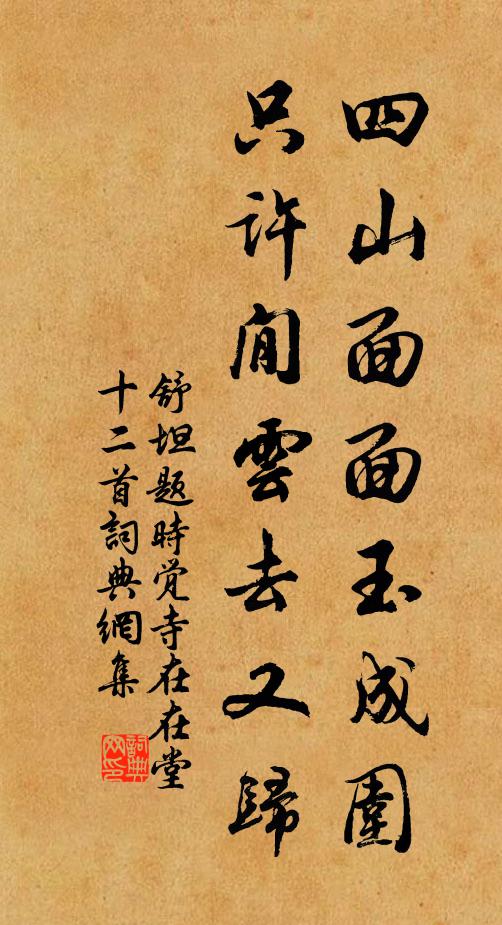 四山面面玉成圍
只許閒雲去又歸
舒坦題時覚寺在在堂
十二首詞典網集
詞典
网印